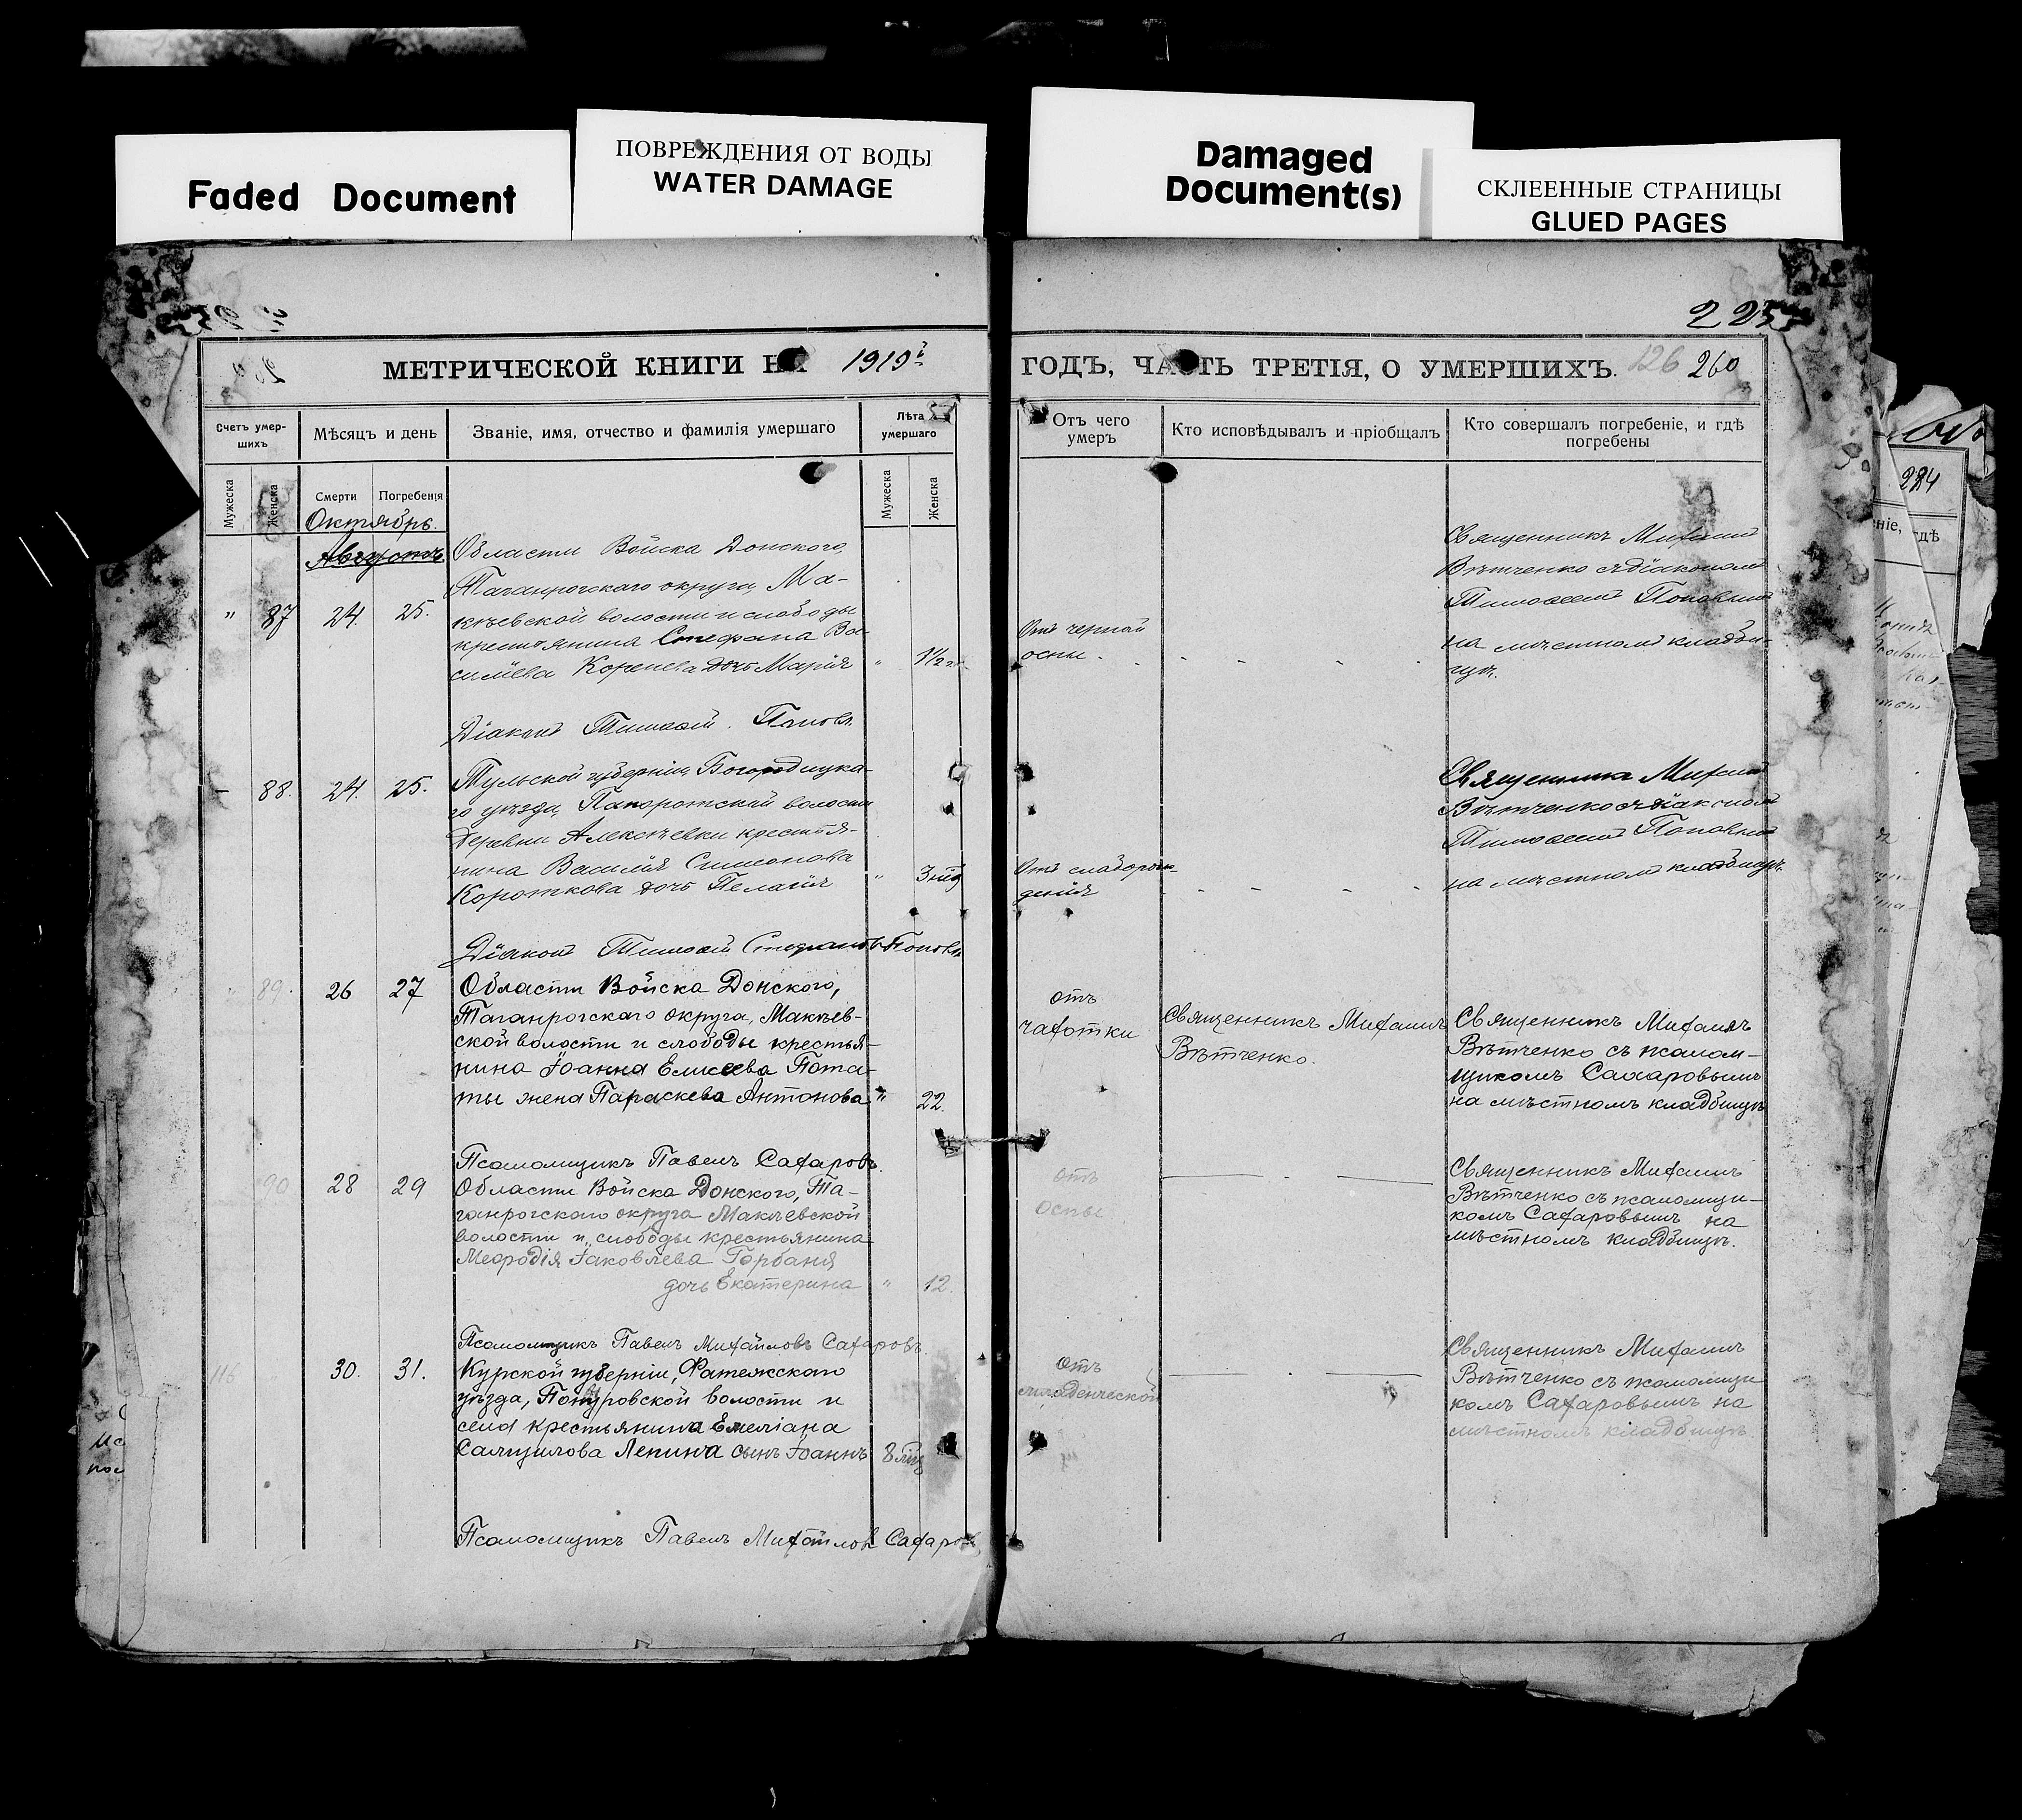 Faded Document
ПОВРЕЖДЕНИЯ ОТ ВОДЫ
WATER DAMAGE
Damaged
Document(s)
СКЛЕЕННЫЕ СТРАНИЦЫ
GLUED PAGES
225
МЕТРИЧЕСКОЙ КНИГИ НА
ГОДЪ, ЧАСТЬ ТРЕТІЯ, О УМЕРШИХЪ. 126 260
Счетъ умер-
шихъ
Мѣсяцъ и день
Званіе, имя, отчество и фамилія умершаго
Лѣта
умершаго
Отъ чего
умеръ
Кто исповѣдывалъ и пріобщалъ
Кто совершалъ погребеніе, и гдѣ
погребены
Мужеска
Женска
Смерти
Погребенія
Мужеска
Женска
Октябрь.
Августъ
" 87 24. 25.
Области Войска Донского,
Таганрогскаго округа, Ма-
кѣевской волости и слободы
крестьянина Стефана Ва-
сильева Коренева дочь Марія
" 1½ г.
Отъ черной
оспы.
Священникъ Михаилъ
Вѣтченко съ діакономъ
Тимоѳеемъ Поповымъ
на мѣстномъ кладби-
щѣ.
Діаконъ Тимоѳей Поповъ.
88. 24. 25.
Тульской губерніи, Богородицка-
го уѣзда, Папоротской волости
деревни Алексѣевки крестья-
нина Василія Симеонова
Короткова дочь Пелагія
"
Отъ слаборож-
денія
Священникъ Михаилъ
Вѣтченко съ діакономъ
Тимоѳеемъ Поповымъ
на мѣстномъ кладбищѣ.
Діаконъ Тимоѳей Стефановъ Поповъ
89. 26 27
Области Войска Донского,
Таганрогскаго округа, Макѣев-
ской волости и слободы крестья-
нина Іоанна Елисеева Пота-
ты жена Параскева Антонова
" 22.
отъ
чахотки
Священникъ Михаилъ
Вѣтченко.
Священникъ Михаилъ
Вѣтченко съ псалом-
щикомъ Сахаровымъ
на мѣстномъ кладбищѣ
Псаломщикъ Павелъ Сахаровъ.
90 28 29
Области Войска Донского, Та-
ганрогскаго округа Макѣевской
волости и слободы крестьянина
Меѳодія Іаковлева Горбаня
дочь Екатерина
" 12.
отъ
оспы
Священникъ Михаилъ
Вѣтченко съ псаломщи-
комъ Сахаровымъ на
мѣстномъ кладбищѣ.
Псаломщикъ Павелъ Михайловъ Сахаровъ.
116 30. 31.
Курской губерніи, Фатежскаго
уѣзда, волости и
села крестьянина Емеліана
Ленина сынъ Іоаннъ
отъ
младенческой
Священникъ Михаилъ
Вѣтченко съ псаломщи
комъ Сахаровымъ на
мѣстномъ кладбищѣ.
Псаломщикъ Павелъ Михайловъ Сахаровъ